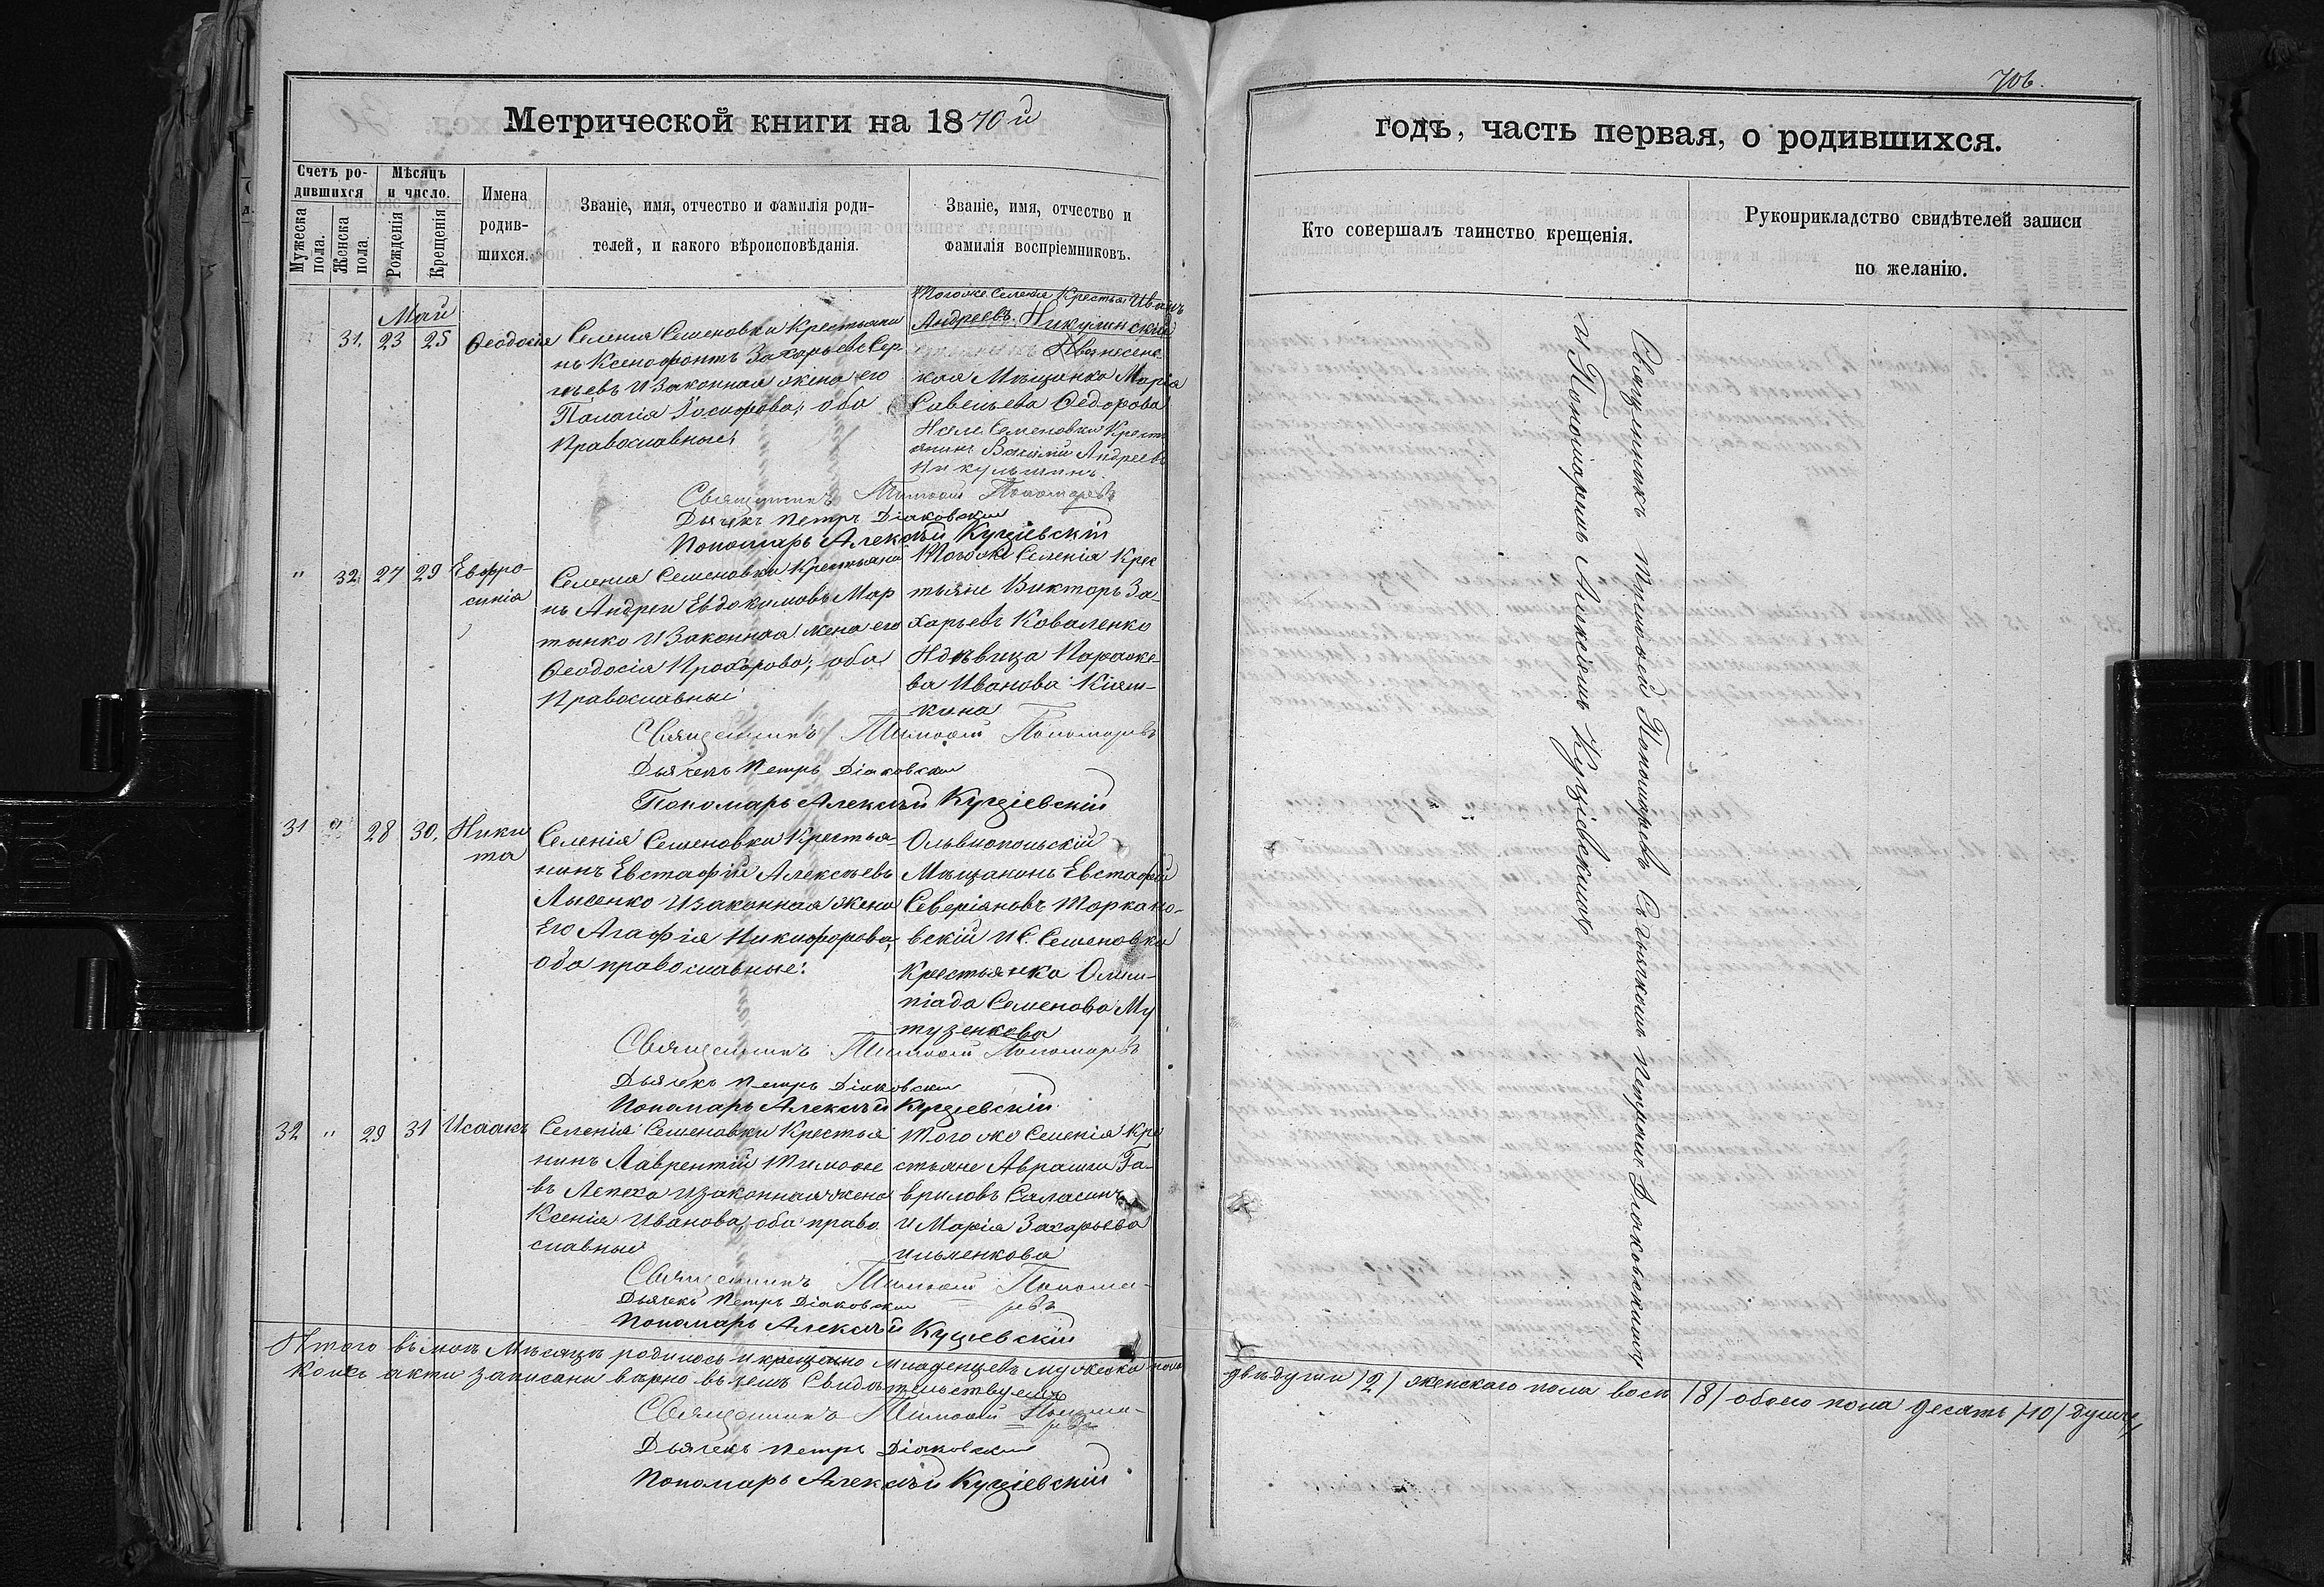 706.
Метрической книги на 1870й
годъ, часть первая, о родившихся.
Счетъ ро-
дившихся
Мужеска
пола.
Женска
пола.
Мѣсяцъ
и число.
Рожденія
Крещенія
Имена
родив-
шихся.
Званіе, имя, отчество и фамилія роди-
телей, и какого вѣроисповѣданія.
Званіе, имя, отчество и
фамилія воспріемниковъ.
Кто совершалъ таинство крещенія.
Рукоприкладство свидѣтелей записи
по желанію.
Май
31. 23 25 Ѳеодосія
Селенія Семеновки Крестьяни
нъ Ксенофонтъ Захарьевъ Сер
гѣевъ и Законная жена его
Палагія Іосифова; оба
Православные
Тогоже Селенія Крестья Иванъ
Андреевъ Никулинскій
Вознесенс
кая Мѣщанка Марія
Савельева Ѳедорова
Семеновки Крест
янинъ Андреевъ
Священникъ Тимоѳей Пономаревъ
Дьячекъ Петръ Діаковскій
Пономарь Алексѣй Куцѣевскій
" 32 27 29 Евфро-
синія
Селенія Семеновки Крестьяни
нъ Андрей Евдокимовъ Мар
тынко и Законная жена его
Ѳеодосія Прохорова; оба
Православные
Того же Селенія Крес
тьяне Викторъ За-
харьевъ Коваленко
Ндѣвица Параске-
ва Иванова Кіяш-
кина
Священникъ Тимоѳей Пономаревъ
Дьячекъ Петръ Діаковскій
Пономарь Алексѣй Куцѣевскій
31 " 28 30. Ники
та
Селенія Семеновки Крестья-
нинъ Евстафій Алексѣевъ
Лысенко и законная жена
Его Агафія Никифорова,
оба православные:
Ольвіопольскій
Мѣщанинъ Евстафій
Северіяновъ Торкано-
вскій и С. Семеновки
Крестьянка Олим-
піада Семенова Му
тузенкова
Священникъ Тимоѳей Пономаревъ
Дьячекъ Петръ Діаковскій
Пономарь Алексѣй Куцѣевскій
32 " 29 31 Исаакъ
Селенія Семеновки Крестья
нинъ Лаврентій Тимоѳе
въ Лепеха и законная жена
Ксенія Иванова, оба право
славные
Того же Селенія Кре
стьяне Аврамъ Га-
вриловъ Саласинъ
и Марія Захарьева
Ильенкова
Священникъ Тимоѳей Понома-
ревъ
Дьячекъ Петръ Діаковскій
Пономарь Алексѣй Куцѣевскій
Священникъ Тимоѳей Пономаревъ Съ дьячкомъ Петромъ Діаковскимъ
и Пономаремъ Алексѣемъ Куцѣевскимъ
Итого въ маѣ Мѣсяцѣ родилось и крещено младенцевъ мужеска пола
двѣ души /2/ женскаго пола восм /8/ обоего пола десять /10/ душъ,
акти записани вѣрно въ чемъ Свидѣтельствуемъ
Священникъ Тимоѳей Понома-
ревъ
Дьячекъ Петръ Діаковскій
Пономарь Алексѣй Куцѣевскій